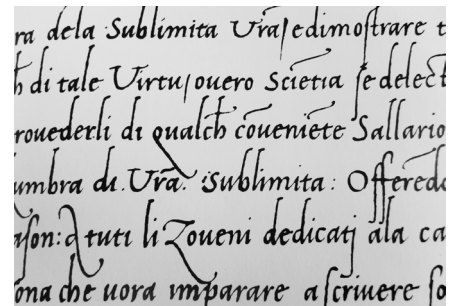 ra dela Sublimita Vrã ſe dimoſtrare t
h di tale Virtu, ouero Sciẽtia ſe delect
rouederli di qualch cõueniẽte Sallario
umbra di. Vrã. Sublimita: Offerẽdo
aſon: & tuti li Zoueni dedicati ala ca
ona che uora imparare a ſcriuere ſo